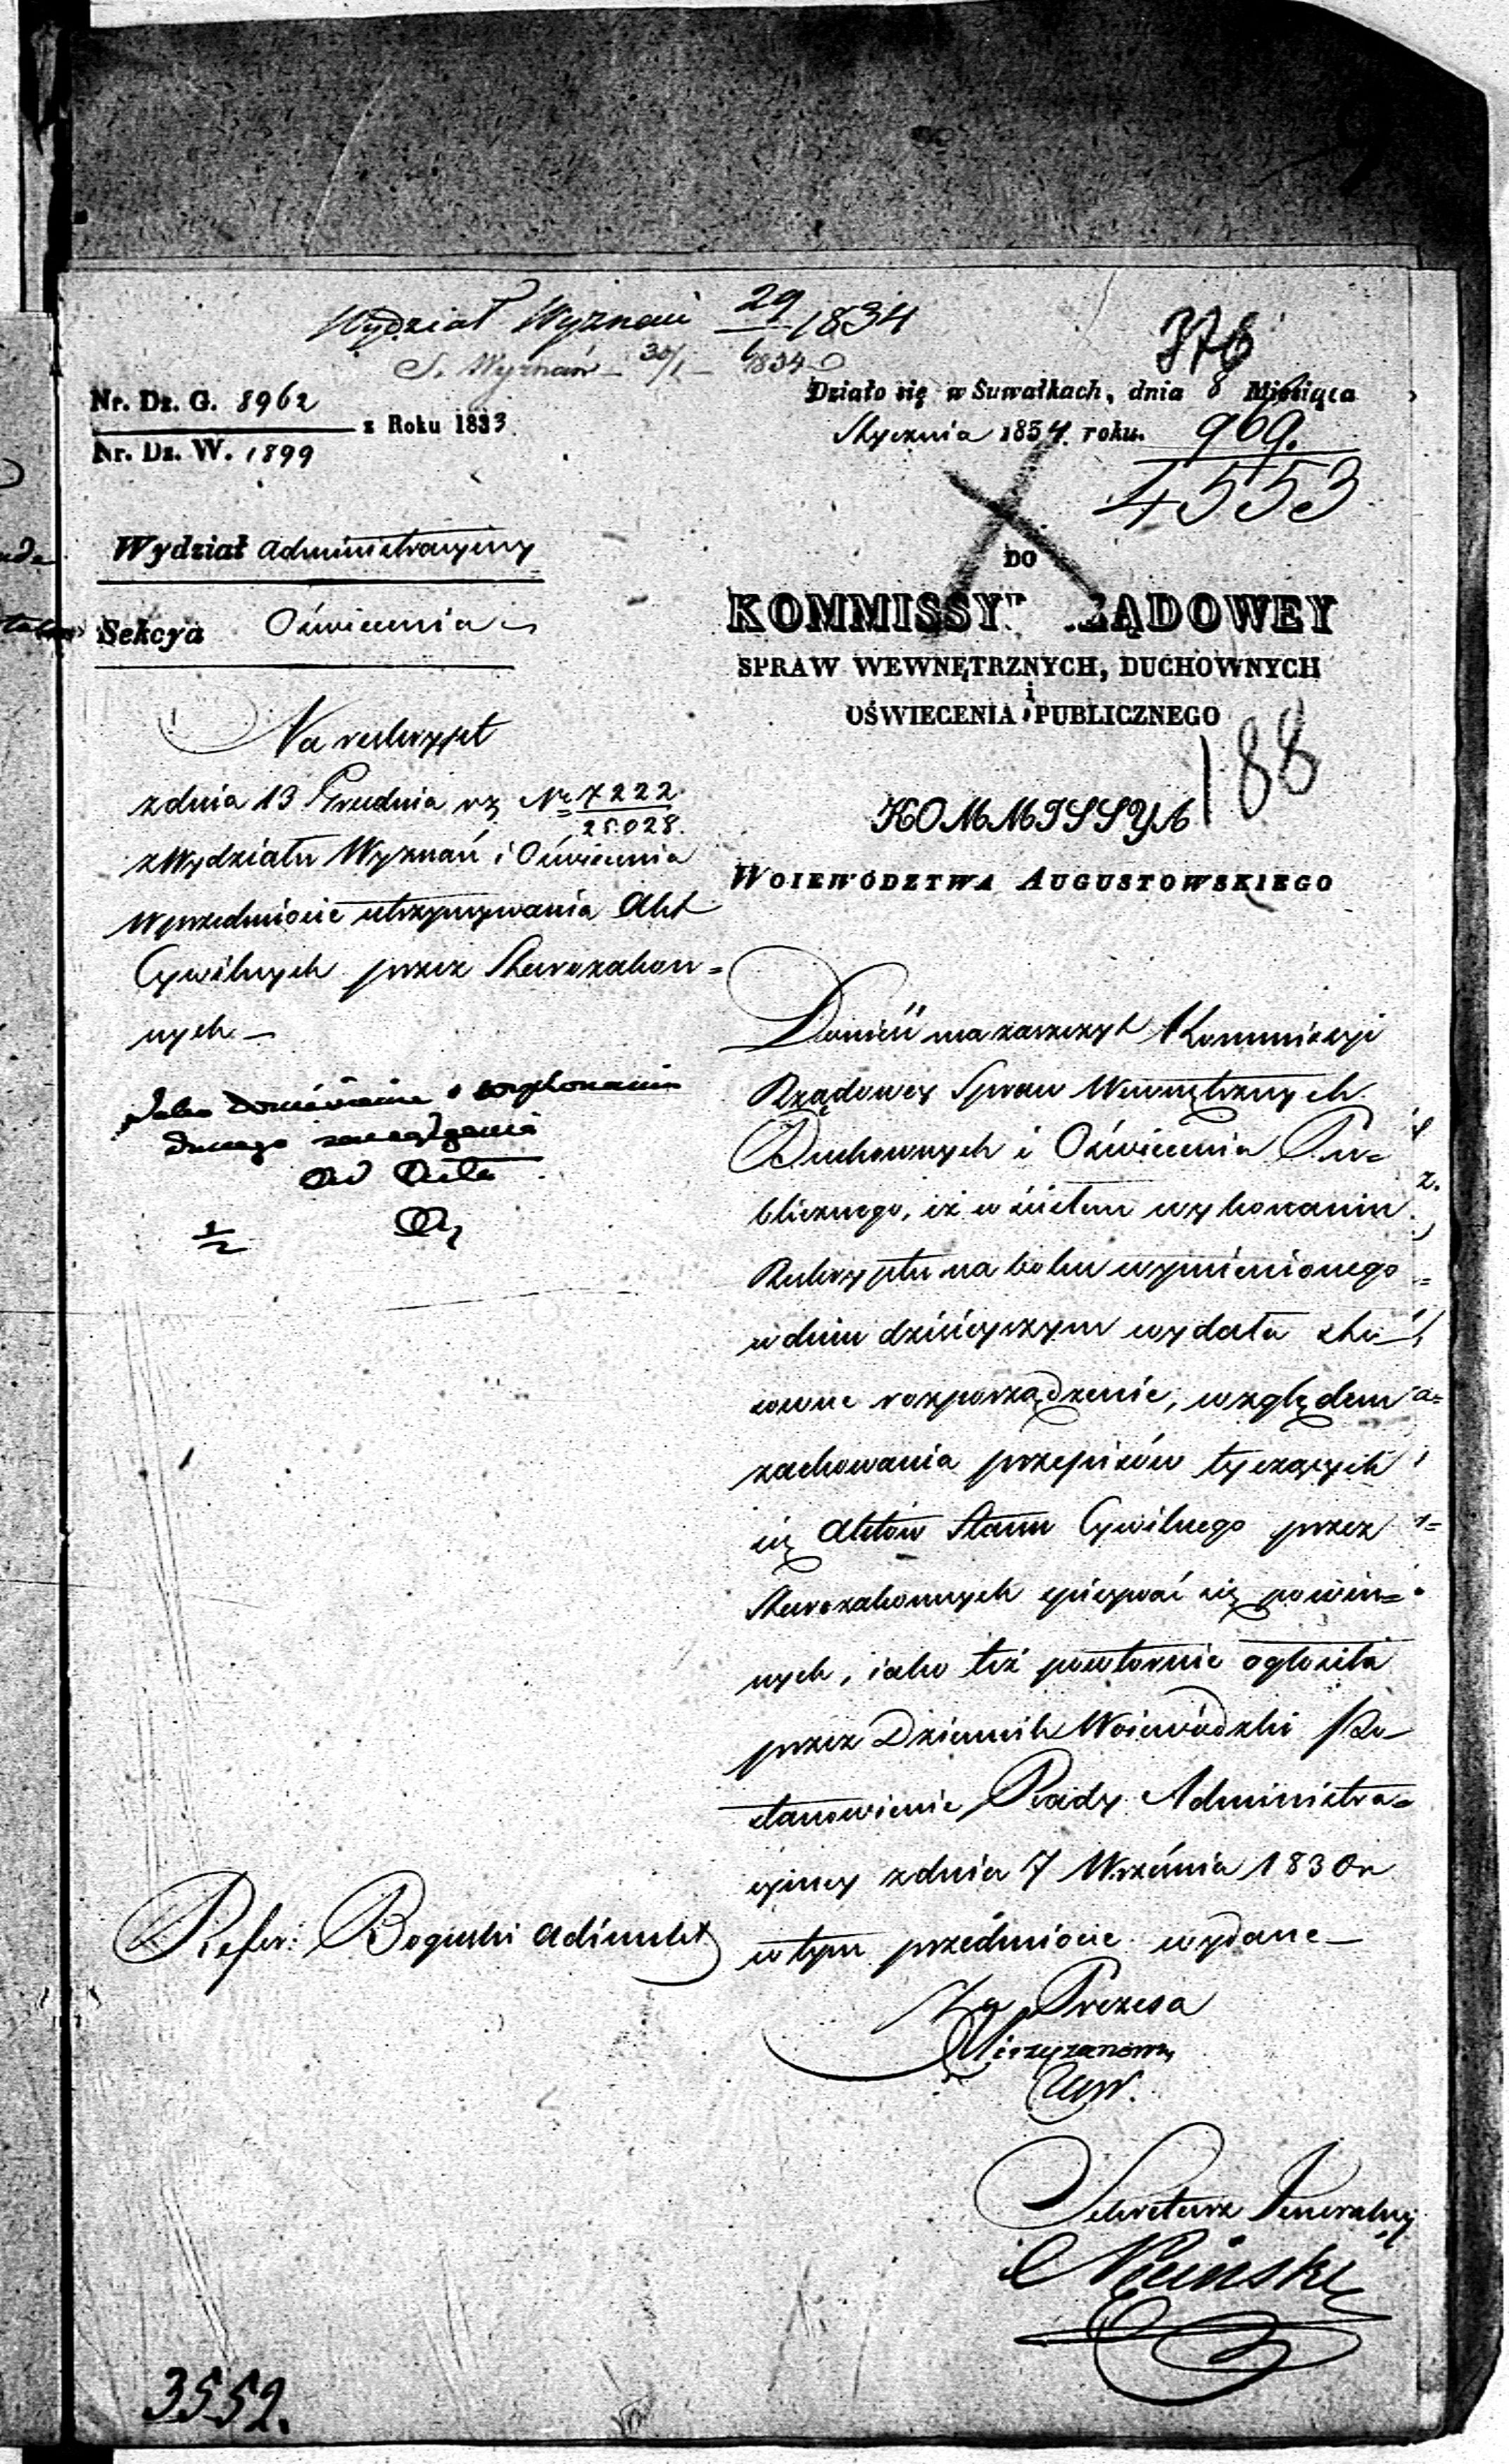 Wydział Wyznań 29/1 1834
S. Wyznań 30/1 1834
376
Nr. Dz. G. 8962
z Roku 1833.
Nr. Dz. W. 1899
Działo się w Suwałkach, dnia 8 Miesiąca
Stycznia 1834. roku.
969.
4553
Wydział Administracyiny
Sekcya Oświecenia
DO
KOMMISSYI RZĄDOWEY
SPRAW WEWNĘTRZNYCH, DUCHOWNYCH
i
OŚWIECENIA PUBLICZNEGO
188
KOMMISSYA
WOIEWÓDZTWA AUGUSTOWSKIEGO
Na reskrypt
z dnia 13 Grudnia rz. Nr 7222
25.028.
z Wydziału Wyznań i Oświecenia
w przedmiocie utrzymywania Akt
Cywilnych przez Starozakon=
nych
Jako doniesienie o wykonaniu
danego zarządzenia
Ad Acta
1/2
Donieść ma zaszczyt Kommissyi
Rządowey Spraw Wewnętrznych
Duchownych i Oświecenia Pu=
blicznego, iż w ścisłem wykonaniu
Reskryptu na boku wymienionego
w dniu dzisieyszym wydała sto=
sowne rozporządzenie, względem
zachowania przepisów tyczących
się Aktów Stanu Cywilnego przez
Starozakonnych spisywać się powin=
nych, iako też powtornie ogłosiła
przez Dziennik Woiewódzki Po=
stanowienie Rady Administra=
cyiney z dnia 7 Września 1830 r
w tym przedmiocie wydane
Refer: Boguski Adiunkt
Za Prezesa
Sekretarz Generalny
3552.